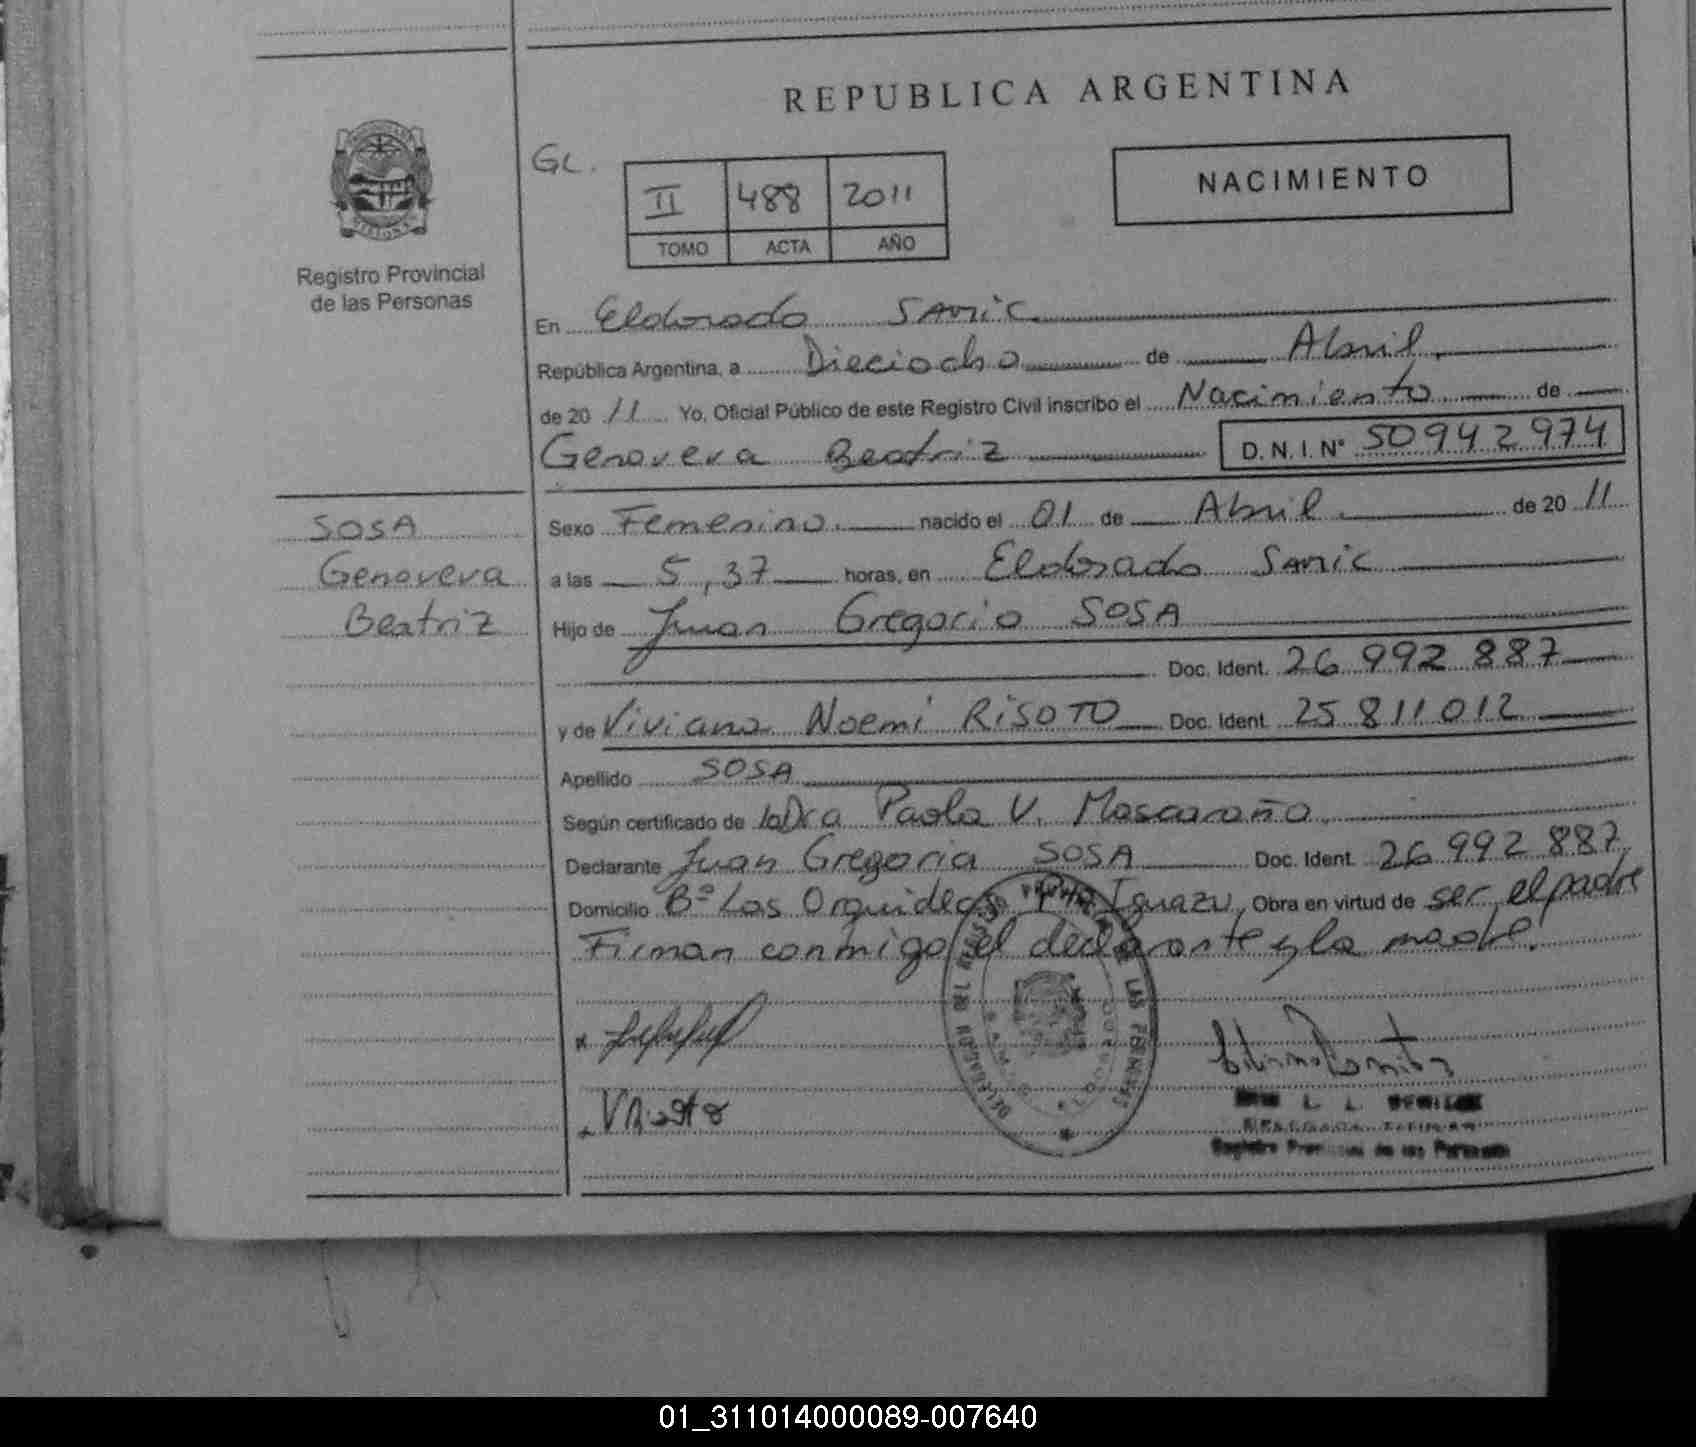 REPUBLICA ARGENTINA
GL.
II 488 2011
TOMO ACTA AÑO
NACIMIENTO
MISIONES
Registro Provincial
de las Personas
En Eldorado SAMIC
República Argentina, a Dieciocho de Abril
de 20 11 Yo, Oficial Público de este Registro Civil inscribo el Nacimiento de
Genoveva Beatriz D. N. I. N° 50942974
SOSA
Genoveva
Beatriz
Sexo Femenino. nacido el 01 de Abril de 20 11
a las 5,37 horas, en Eldorado SAMIC
Hijo de Juan Gregorio SOSA
Doc. Ident. 26 992 887
y de Viviana Noemi RISOTO Doc. Ident. 25 811 012
Apellido SOSA
Según certificado de la Dra Paola V.
Declarante Juan Gregorio SOSA Doc. Ident. 26 992 887
Domicilio B° Las Orquideas Pto Iguazu, Obra en virtud de ser el padre
Firman conmigo el declarante y la madre.
DE LAS PERSONAS
Registro Provincial de las Personas
01_311014000089-007640